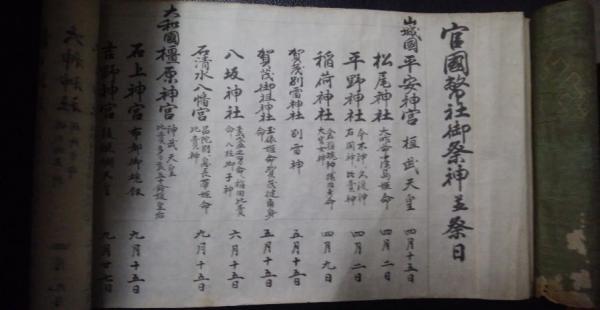 官國幣社御祭神並祭日
山城國 平安神宮 桓武天皇 四月十五日
松尾神社 大山咋命 中津島姫命 四月二日
平野神社 今木神 久度神 古開神 比賣神 四月二日
稲荷神社 四月九日
賀茂別雷神社 別雷神 五月十五日
賀茂御祖神社 玉依姫命 賀茂建角身命 五月十五日
八坂神社 八柱御子神 六月十五日
石清水八幡宮 息長帯姫命 比賣神 九月十五日
大和國 橿原神宮 神武天皇
石上神宮 布都御魂 九月十五日
吉野神宮 後醍醐天皇 九月廿七日
大神神社